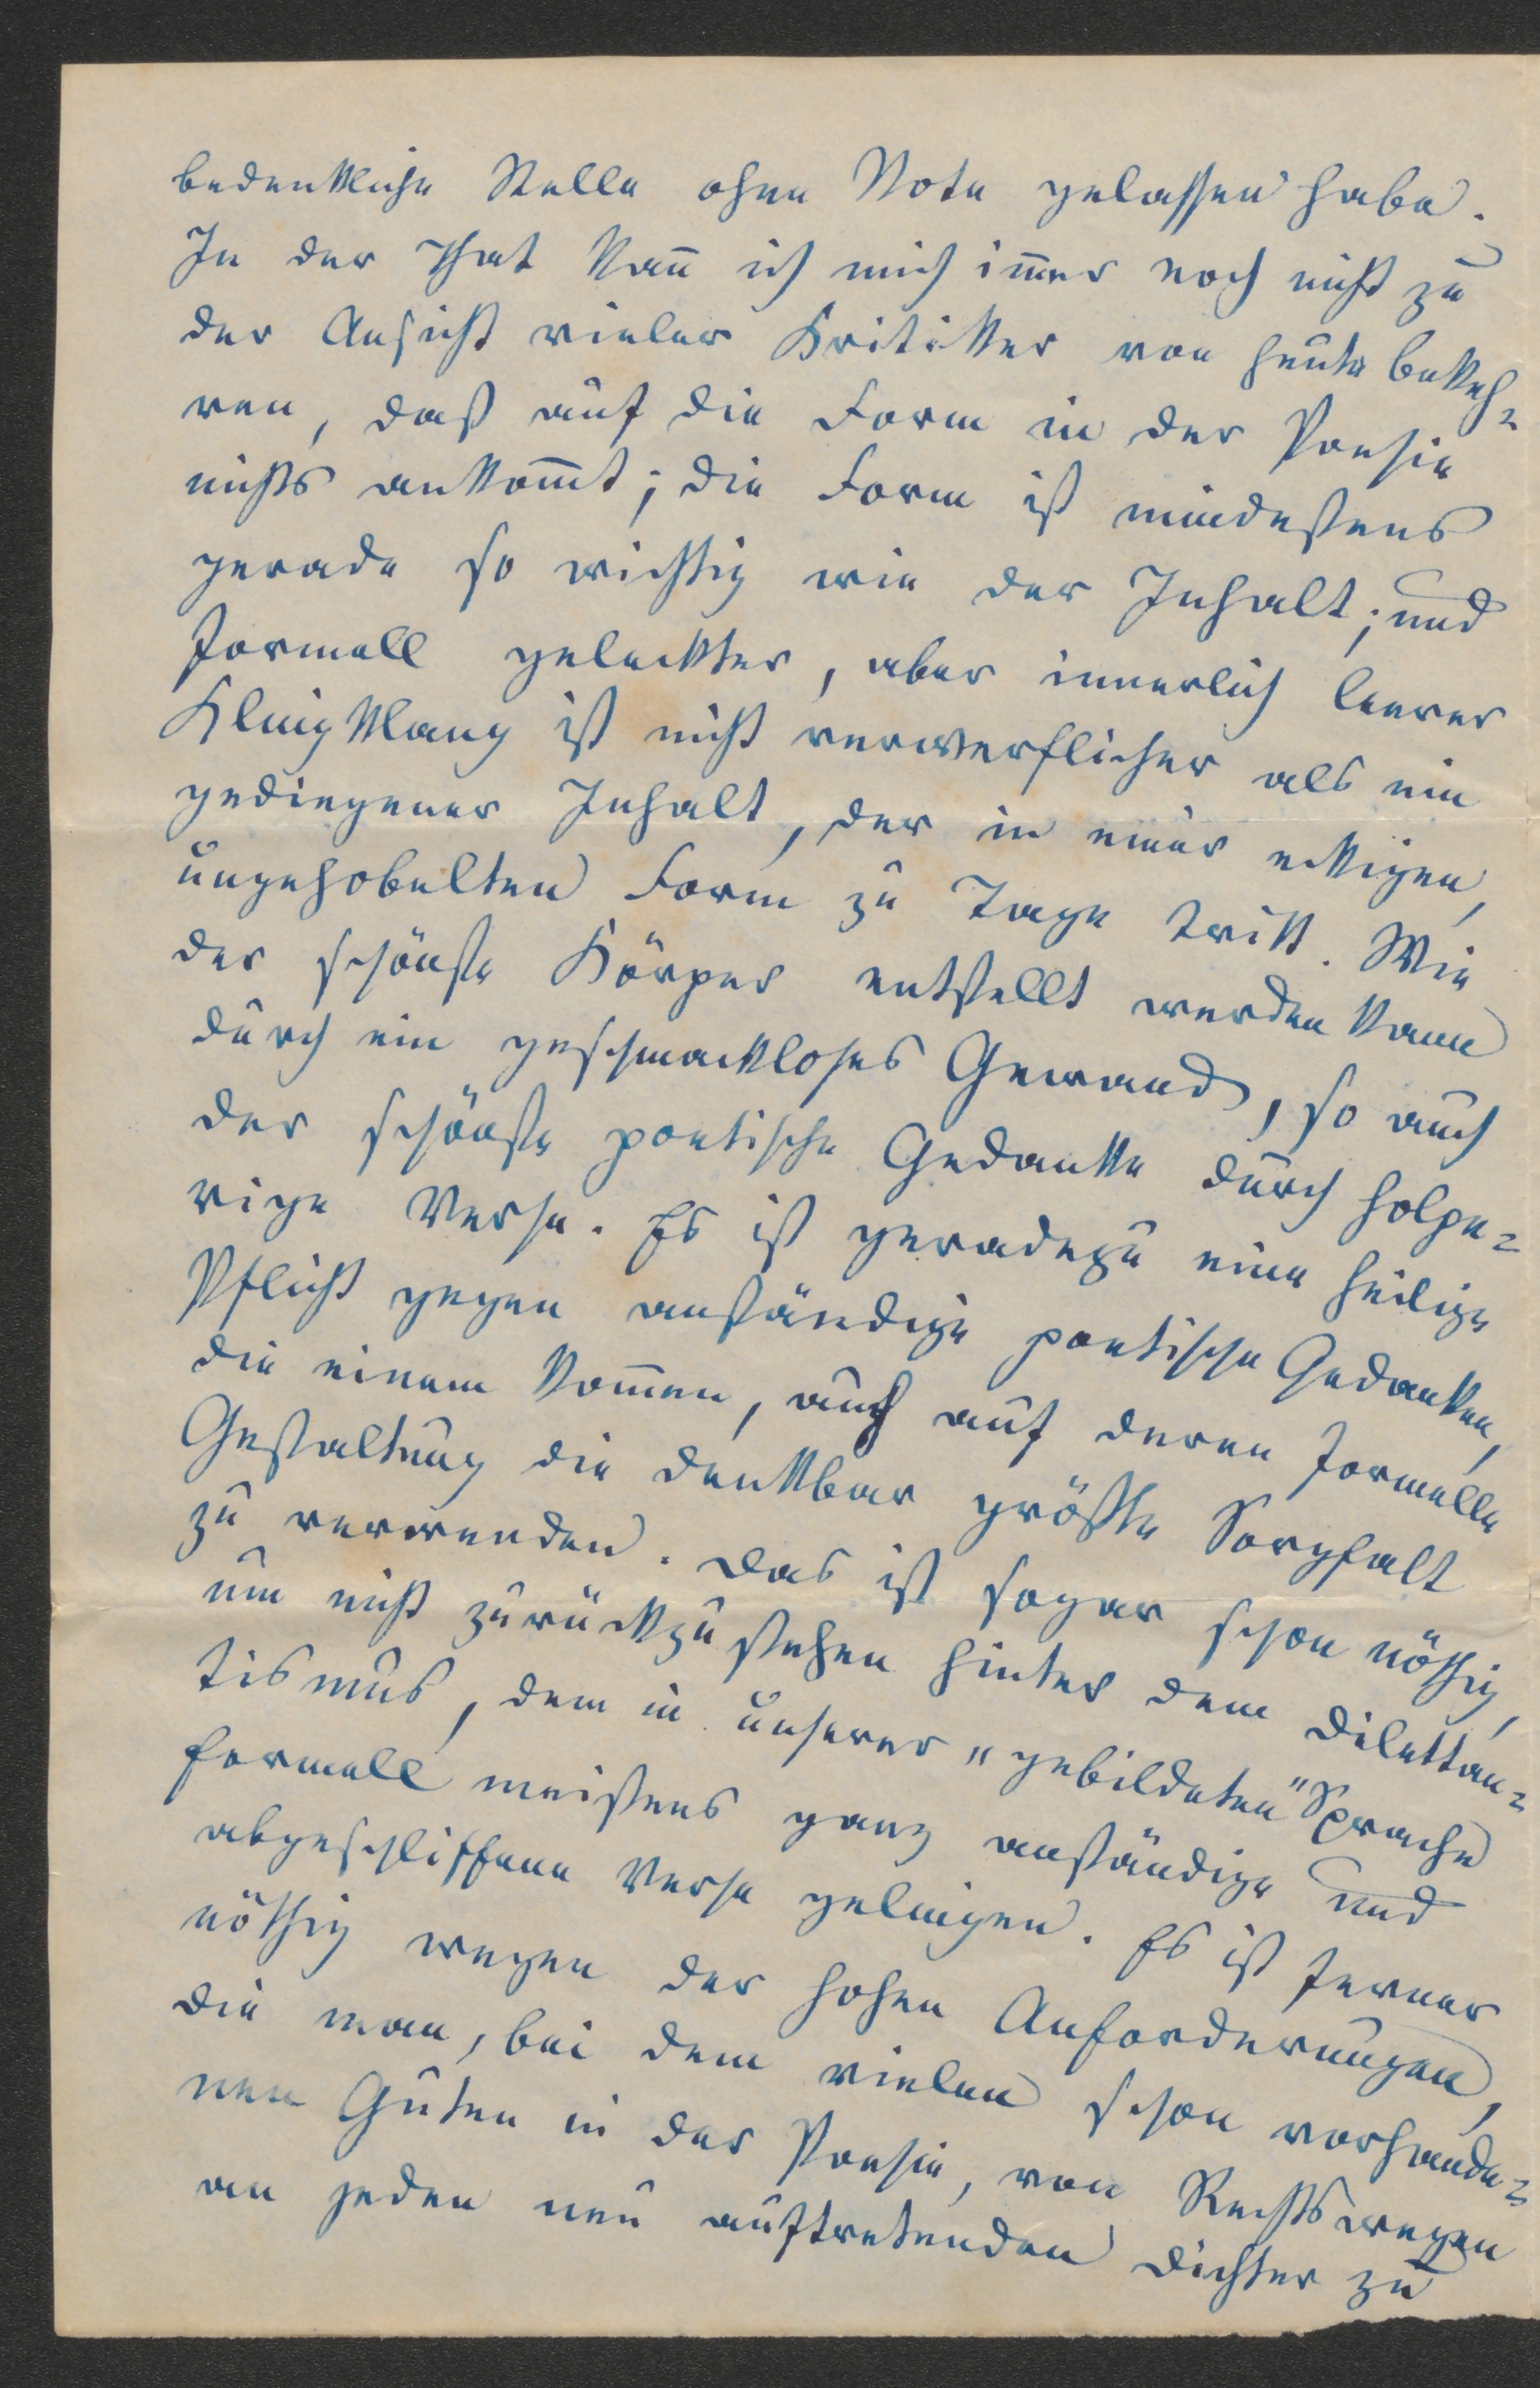 bedenkliche Stelle ohne Note gelassen habe.
In der That kan̄ ich mich im̄er noch nicht zu
der Ansicht vieler Kritiker von heute bekeh=
ren, daß auf die Form in der Poesie
nichts ankom̄t; die Form ist mindestens
gerade so wichtig wie der Inhalt; und
formell geleckter, aber innerlich leerer
Klingklang ist nicht verwerflicher als ein
gediegener Inhalt, der in einer eckigen,
ungehobelten Form zu Tage tritt. Wie
der schönste Körper entstellt werden kann
durch ein geschmackloses Gewand, so auch
der schönste poetische Gedanke durch holpe=
rige Verse. Es ist geradezu eine heilige
Pflicht gegen anständige poetische Gedanken,
die einem kom̄en, auch auf deren formelle
Gestaltung die denkbar größte Sorgfalt
zu verwenden. Das ist sogar schon nöthig,
um nicht zurückzustehen hinter dem Dilettan=
tismus, dem in unserer „gebildeten" Sprache
formell meistens ganz anständige und
abgeschliffene Verse gelingen. Es ist ferner
nöthig wegen der hohen Anforderungen,
die man, bei dem vielen schon vorhande=
nen Guten in der Poesie, von Rechtswegen
an jeden neu auftretenden Dichter zu